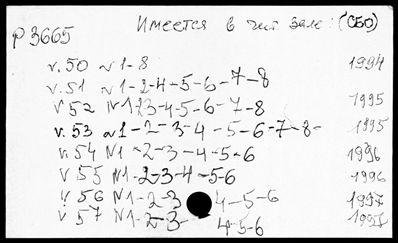 Р3665 Имеется в чит зале: (СБО)
v. 50 N 1-8 1994
v. 51 N 1-2-4-5-6-7-8
V 52 N 1 23-4-5-6-7-8 1995
v. 53 N 1-2-3-4-5-6-7-8- 1995
v. 54 N 1-2-3-4-5-6 1996
V 55 N 1-2-3-4-5-6 1996
V 56 N 1-2-3 4-5-6 1997
V 57 N 1-2-3- 4-5-6 1997